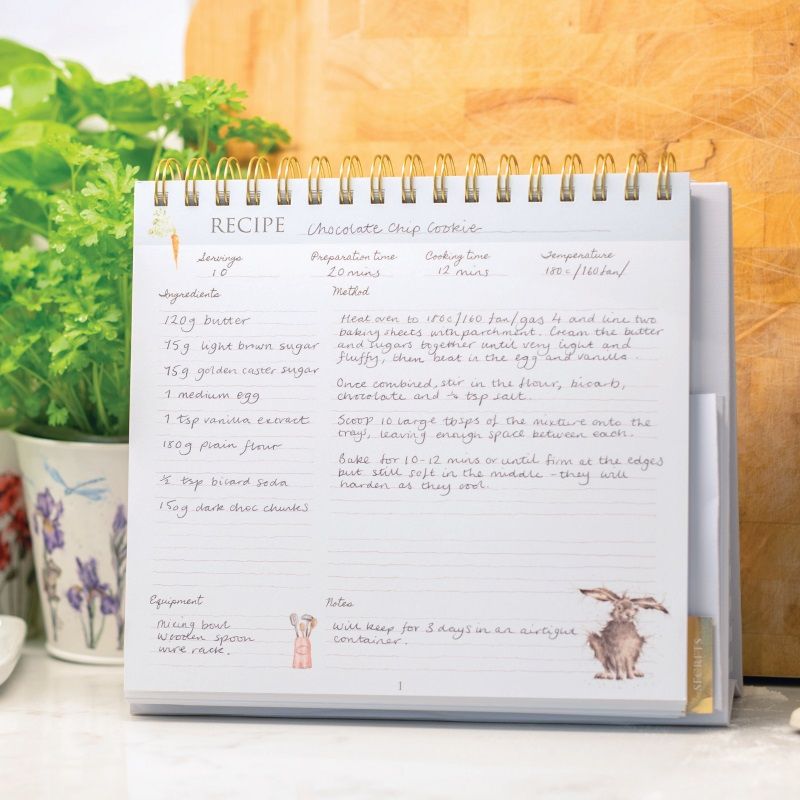 RECIPE Chocolate Chip Cookie
Servings Preparation time Cooking time Temperature
10 20 mins 12 mins 180c/160fan/
Ingredients
120g butter
75g light brown sugar
75g golden caster sugar
1 medium egg
1 tsp vanilla extract
180g plain flour
½ tsp bicard soda
150g dark choc chunks
Method
Heat oven to 180c/160 fan/gas 4 and line two
baking sheets with parchment. Cream the butter
and sugars together until very light and
fluffy, then beat in the egg and vanilla.
Once combined, stir in the flour, bicarb,
chocolate and ¼ tsp salt.
Scoop 10 large tbsps of the mixture onto the
trays, leaving enough space between each.
Bake for 10-12 mins or until firm at the edges
but still soft in the middle - they will
harden as they cool.
Equipment
mixing bowl
wooden spoon
wire rack.
Notes
Will keep for 3 days in an airtight
container.
1
SECRETS